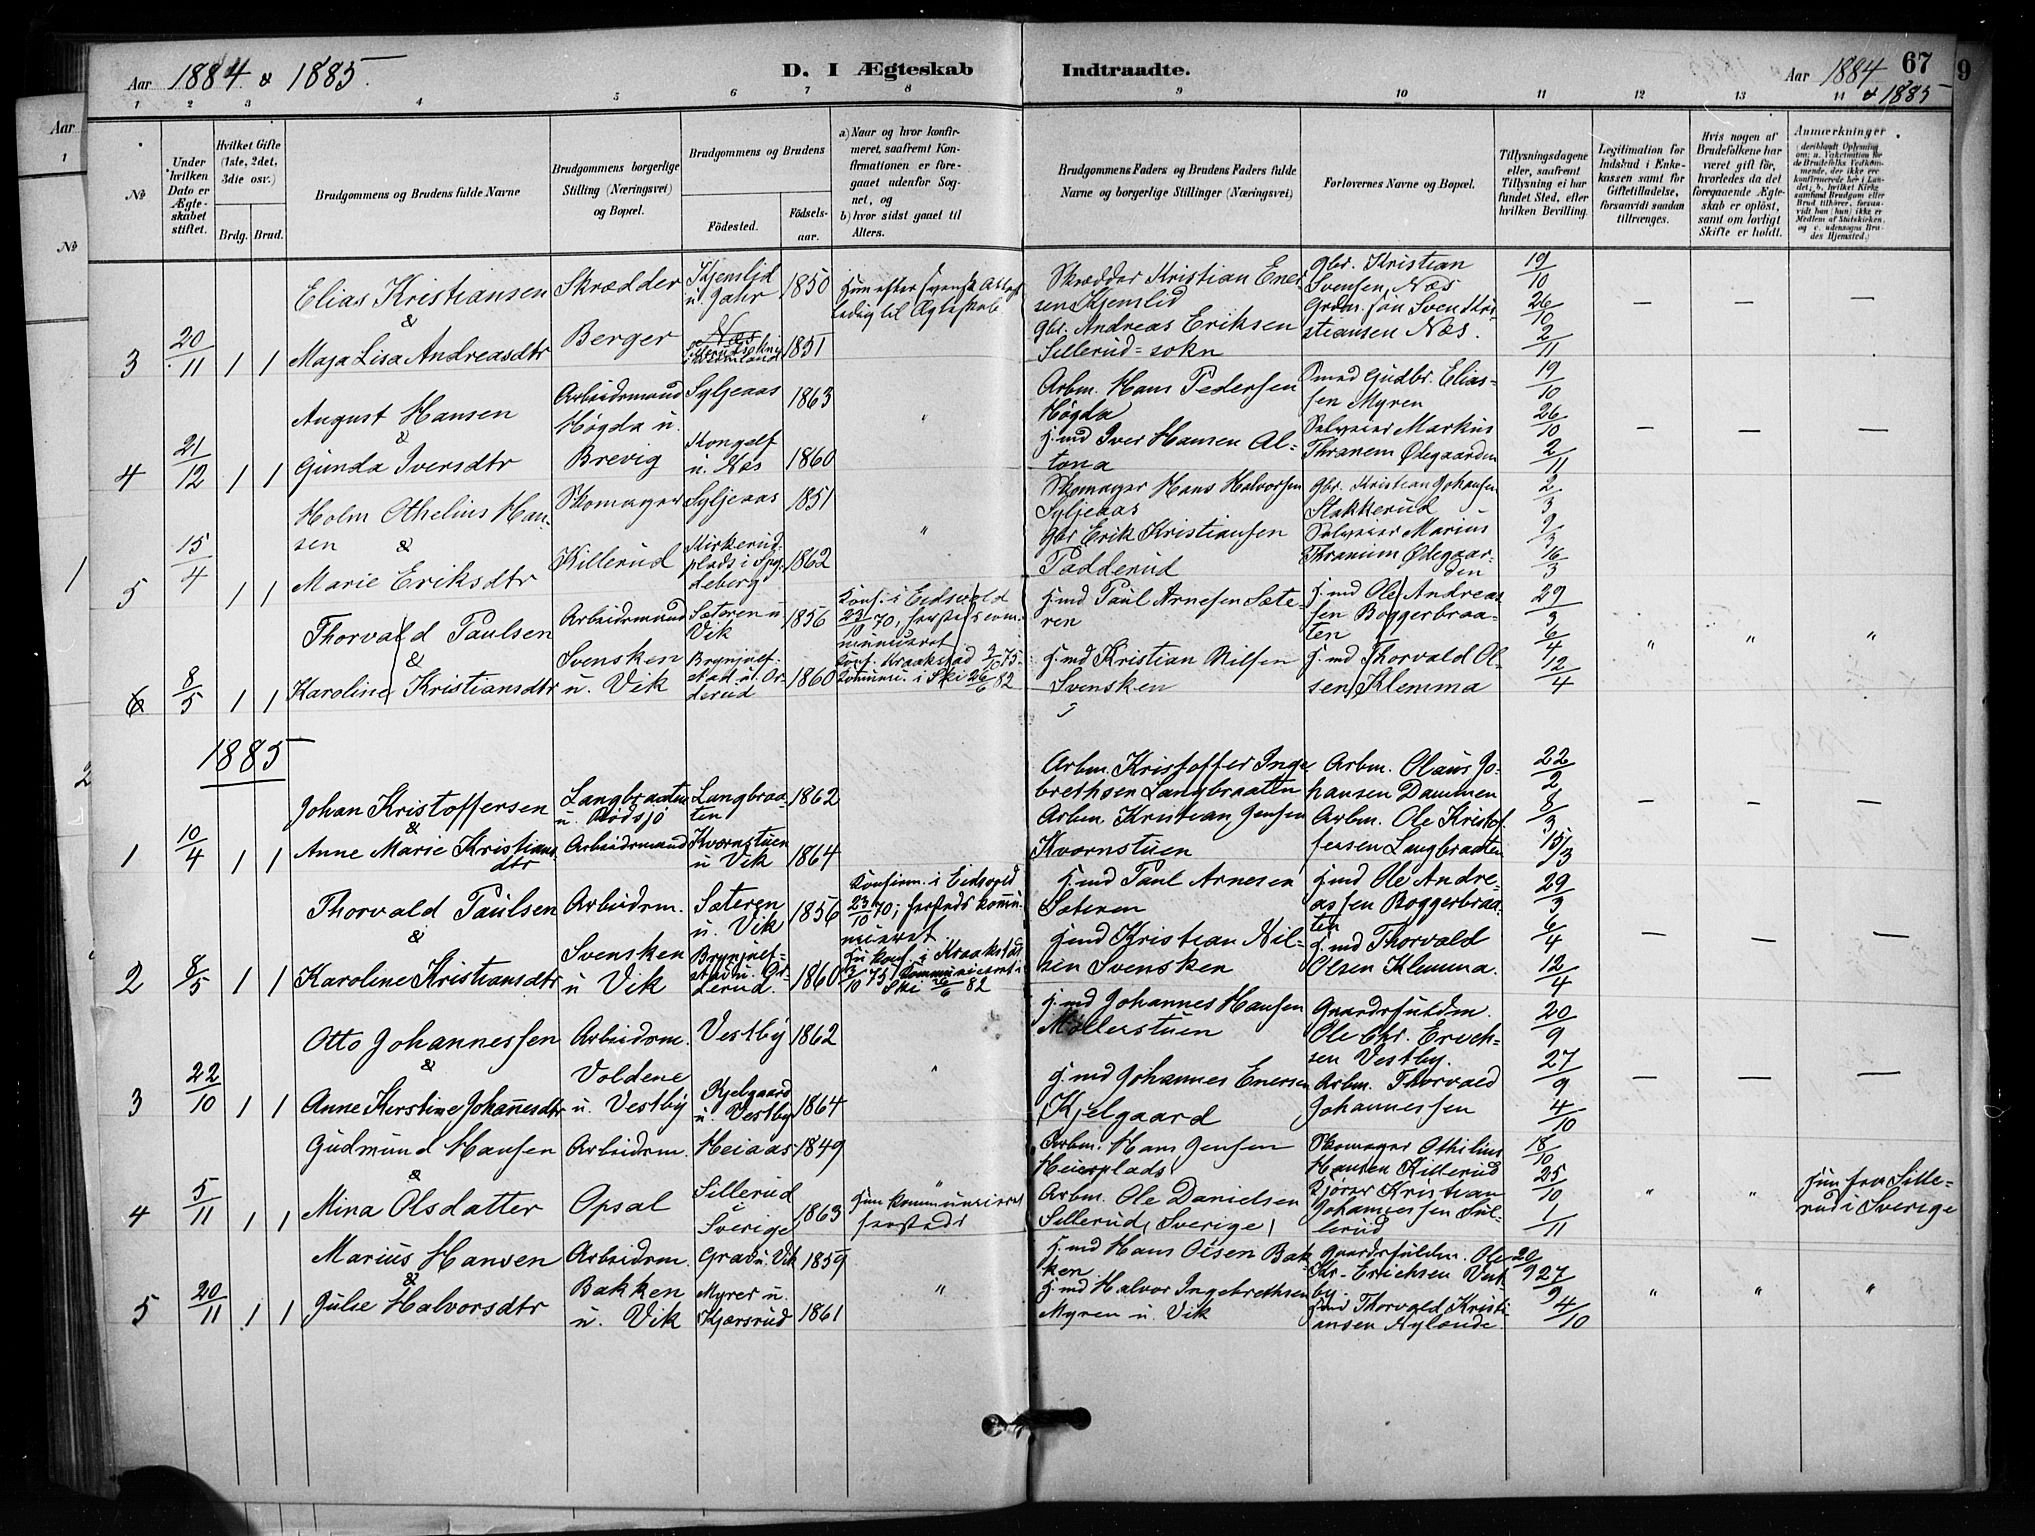 Aar 1884 & 1885.
D. I Ægteskab Indtraadte.
Aar 1884 & 1885
67
9
1 2 3 4 5 6 7 8 9 10 11 12 13 14
Aar
1
№
№
Under hvilken Dato er Ægteskabet stiftet.
Hvilket Gifte (1ste, 2det, 3die osv.)
Brdg. Brud.
Brudgommens og Brudens fulde Navne
Brudgommens borgerlige Stilling (Næringsvei) og Bopæl.
Brudgommens og Brudens
Födested.
Födselsaar.
a) Naar og hvor konfirmeret, saafremt Konfirmationen er foregaaet udenfor Sognet, og
b) hvor sidst gaaet til Alters.
Brudgommens Faders og Brudens Faders fulde Navne og borgerlige Stillinger (Næringsvei)
Forlovernes Navne og Bopæl.
Tillysningsdagene eller, saafremt Tillysning ei har fundet Sted, efter hvilken Bevilling.
Legitimation for Indskud i Enkekassen samt for Giftetilladelse, forsaavidt saadan tiltrænges.
Hvis nogen af Brudefolkene har været gift før, hvorledes da det foregaaende Ægteskab er oplöst, samt om lovligt Skifte er holdt.
Anmærkninger
Elias Kristiansen Skrædder Kjenslid u. Gahr 1850 Hun efter svensk Attest ledig til Ægteskab
Skrædder Kristian Enersen Kjemlid Gbr. Kristian Svensen Næs 19/10
&
3 20/11 1 1 Maja Lisa Andreasdtr Berger Næs Sillerud sokn i Wermland 1851
Gbr. Andreas Eriksen Sillerud=sokn Grdm. søn Sven Kristiansen Næs. 26/10 2/11
August Hansen Arbeidsmand Syljeaas 1863
Arbm. Hans Pedersen Høgda Smed Gudbr. Eliassen Myren 19/10
&
4 21/12 1 1 Gunda Iversdtr Høgda u. Brevig Kongelf u. Næs 1860
H.md Iver Hansen Altona Selveier Markus Thranem Ødegaarden 26/10 2/11
Holm Othelius Hansen Skomager Syljeaas 1851
Skomager Hans Halvorsen Syljeaas Gbr. Kristian Johansen Stakkerud 2/3
&
5 15/4 1 1 Marie Eriksdtr Killerud Kirkerudplads i Spydeberg 1862
Gbr Erik Kristiansen Padderud Selveier Marius Thranum Ødegaarden 9/3 16/3
Thorvald Paulsen Arbeidsmand Sæteren u Vik 1856 Konf. i Eidsvold 23/10 70, sersteds comminiceret
H.md Paul Arnesen Sæteren H.md Ole Andreassen Boggerbraaten 29/3
&
6 8/5 1 1 Karoline Kristiansdtr Svensken u. Vik Brynjulfstad u. Orderud 1860 Konf. Kraakstad 3/10 75. Kommuni. i Ski 26/6 82
H.md Kristian Nilsen Svensken H.md Thorvald Olsen Klemma 6/4 12/4
1885
Johan Kristoffersen Langbraaten u. Rødsjø Langbraaten 1862
Arbm. Kristoffer Ingebrethsen Langbraaten Arbm. Olaus Johansen Dammen 22/2
&
1 10/4 1 1 Anne Marie Kristiansdtr Arbeidsmand Kvornstuen u Vik 1864
Arbm Kristian Jensen Kvornstuen Arbm. Ole Kristoffersen Langbraaten 8/3 15/3
Thorvald Paulsen Arbeidsm. Sæteren u. Vik 1856 Konfirm. i Eidsvold 23/10 70; sersteds kommuniceret
H.md Paul Arnesen Sæteren H.md Ole Andreassen Boggerbraaten 29/3
&
2 8/5 1 1 Karoline Kristiansdtr Svensken u Vik Brynjulfstad u. Orderud. 1860 Hu konf. i Kraakstad 3/10 75 Kommuniceret i Ski 26/6 82
H.md Kristian Nilsen Svensken H.md Thorvald Olsen Klemma. 6/4 12/4
Otto Johannessen Arbeidsm. Vestby 1862
H.md Johannes Hansen Møllerstuen Gaardsfuldm. Ole Chr. Erichsen Vestby. 20/9
&
3 22/10 1 1 Anne Kerstine Johannesdtr Voldene u. Vestby Kjelgaard u. Vestby 1864
H.md Johannes Enersen Kjelgaard Arbm. Thorvald Johannessen 27/9 4/10
Gudmund Hansen Arbeidsm. Heiaas 1849
Arbm. Hans Jensen Heierplads Skomager Othilius Hansen Killerud 18/10
&
4 5/11 1 1 Mina Olsdatter Opsal Sillerud Sverige 1863 Hun kommuniceret sersteds
Arbm. Ole Danielsen Sillerud, Sverige, Kjører Kristian Johannessen Sullerud 25/10 1/11
Hun fra Sillerud i Sverige
Marius Hansen Arbeidsm. Grav u. Vik 1859
H.md Hans Olsen Bakken Gaardsfuldm. Ole Kr. Erichsen Vestby. 20/9 27/9
&
5 20/11 1 1 Julie Halvorsdtr Bakken u. Vik Myrer u. Kjærsrud 1861
H.md Halvor Ingebrethsen Myren u. Vik H.md Thorvald Kristiansen Nylænde. 4/10